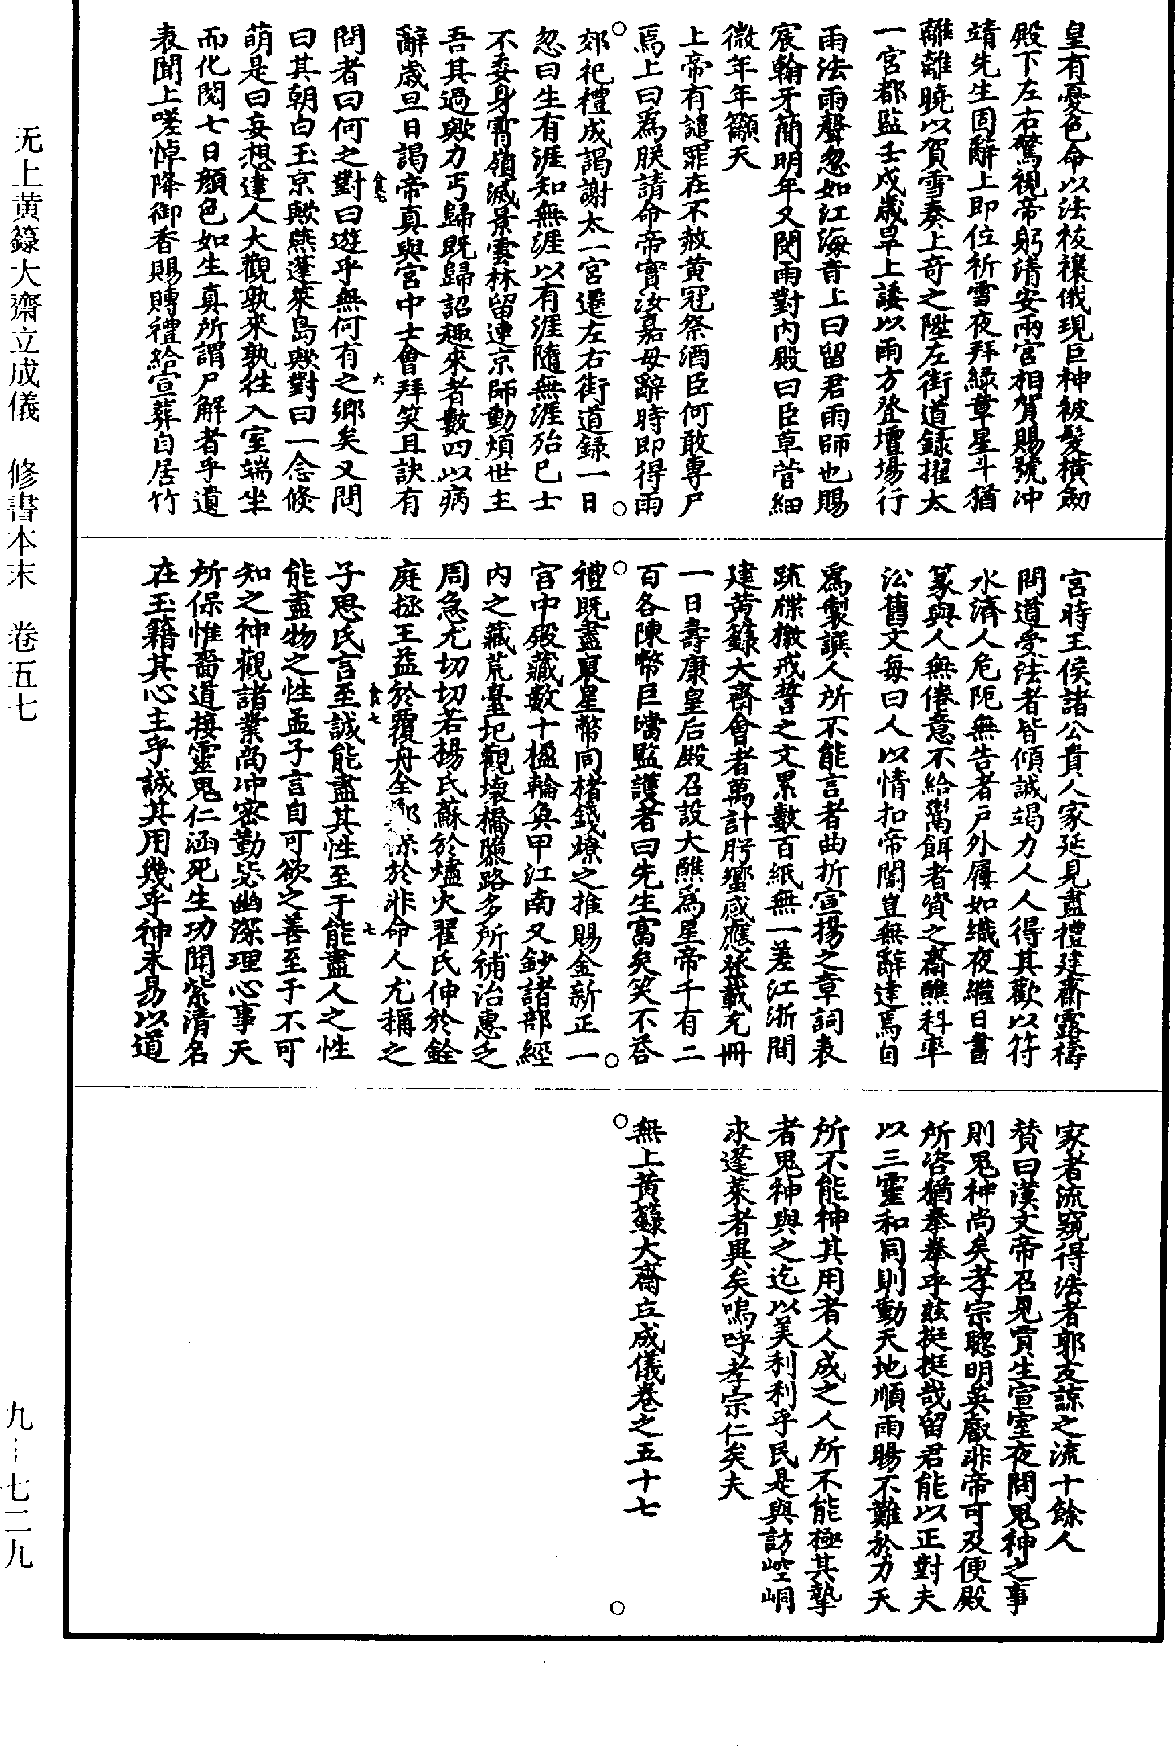 皇有憂色命以法祓禳俄現巨神被髮橫劒
殿下左右驚視帝躬清安兩宮相賀賜號沖
靖先生固辭上即位祈雪夜拜綠章星斗猶
離離曉以賀雪奏上奇之陞左街道錄擢太
一宮都監壬戌歲旱上諉以雨方登壇場行
雨法雨聲忽如江海音上曰留君雨師也賜
宸翰牙簡明年又閔雨對內殿曰臣草菅細
微年年籲天
上帝有譴罪在不赦黃冠祭酒臣何敢專尸
焉上曰為朕請命帝實汝嘉毋辭時即得雨
郊祀禮成謁謝太一宮還左右街道錄一日
忽曰生有涯知無涯以有涯隨無涯殆已士
不委身霄嶺滅景雲林留連京師動煩世主
吾其過歟力丐歸既歸詔趣來者數四以病
辭歲旦日謁帝真與宮中士會拜笑且訣有
問者曰何之對曰遊乎無何有之鄉矣又問
曰其朝白玉京歟燕蓬萊島歟對曰一念倏
萌是曰妄想達人大觀孰來孰往入室端坐
而化閱七日顏色如生真所謂尸解者乎遺
表聞上嗟悼降御香賜賻禮給宣葬自居竹
宮時王侯諸公貴人家延見盡禮建齋露禱
問道受法者皆傾誠竭力人人得其歡以符
水濟人危阨無告者戶外屨如織夜繼日書
篆與人無倦意不給鬻餌者資之齋醮科率
㳂舊文每曰人以情扣帝閽豈無辭達焉自
為製譔人所不能言者曲折宣揚之章詞表
疏牒檄戒誓之文累數百紙無一差江浙間
建黃籙大齋會者萬計肸蠁感應登載充冊
一日壽康皇后殿召設大醮為星帝千有二
百各陳幣巨璫監護者曰先生富矣笑不荅
禮既盡裒星幣同楮錢燎之推賜金新正一
宮中殿藏數十楹輪奐甲江南又鈔諸部經
內之藏荒臺圯觀壞橋隘路多所補治惠乏
周急尤切切若楊氏蘇於爐火翟氏伸於銓
庭拯王益於覆舟全鄭保於非命人尤稱之
子思氏言至誠能盡其性至于能盡人之性
能盡物之性孟子言自可欲之善至于不可
知之神觀諸業尚冲密勤毖幽深理心事天
所保惟嗇道接靈鬼仁涵死生功聞紫清名
在玉籍其心主乎誠其用幾乎神未易以道
家者流窺得浩者郭友諒之流十餘人
贊曰漢文帝召見賈生宣室夜問鬼神之事
則鬼神尚矣孝宗聰明英叡非帝可及便殿
所咨猶拳拳乎茲挺挺哉留君能以正對夫
以三靈和同則動天地順雨暘不難於力天
所不能神其用者人成之人所不能極其摯
者鬼神與之迄以美利利乎民是與訪崆峒
求蓬萊者異矣嗚呼孝宗仁矣夫
無上黃籙大齋立成儀卷之五十七
无上黄籙大齋立成儀　修書本末　卷五七
九—七二九